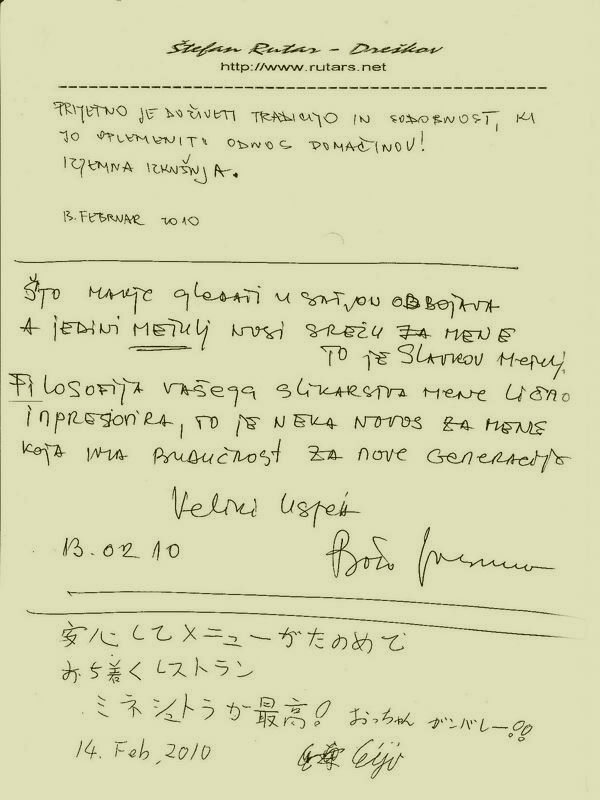 Štefan Rutar - Dreškov
http://www.rutars.net
PRIJETNO JE DOŽIVETI TRADICIJO IN SODOBNOST, KI
JO OPLEMENITI ODNOS DOMAČINOV!
IZJEMNA IZKUŠNJA.
13. FEBRUAR 2010
ŠTO MANJE gledati u
A jedini METULJ NOSI SREĆU ZA MENE
TO JE SLAVKOV METULJ
FILOSOFIJA VAŠEGA SLIKARSTVA MENE LIČNO
IMPRESIONIRA, TO JE NEKA NOVOS ZA MENE
KOJA IMA BUDUĆNOST ZA NOVE GENERACIJE
Veliki Uspeh
13.02 10
Božo
安心してメニューがたのめて
おち着くレストラン
ミネシュトラが最高! おっちゃん ガンバレー!!
14. Feb, 2010
Eiji